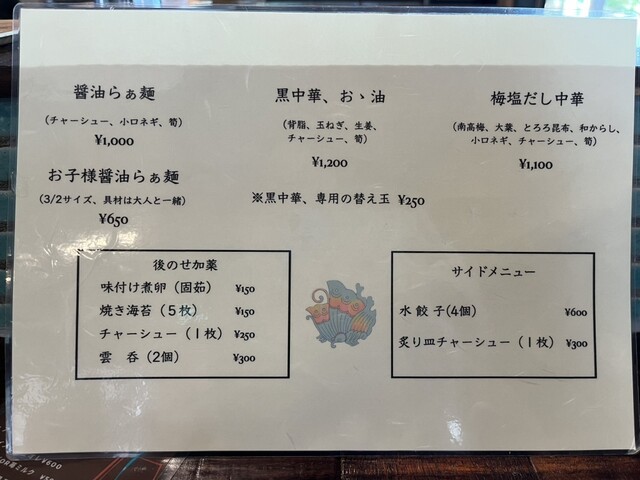 醤油らぁ麺
（チャーシュー、小ロネギ、筍）
¥1,000
お子様醤油らぁ麺
（3/2サイズ、具材は大人と一緒）
¥650
黒中華、おゝ油
（背脂、玉ねぎ、生姜、
チャーシュー、筍）
¥1,200
※黒中華、専用の替え玉 ¥250
梅塩だし中華
（南高梅、大葉、とろろ昆布、和からし、
小ロネギ、チャーシュー、筍）
¥1,100
後のせ加薬
味付け煮卵（固茹） ¥150
焼き海苔（５枚） ¥150
チャーシュー（１枚） ¥250
雲 呑（2個） ¥300
サイドメニュー
水 餃 子(4個) ¥600
炙り皿チャーシュー（１枚） ¥300
¥600